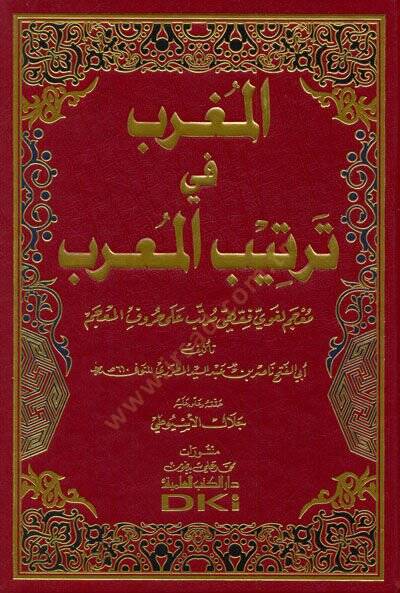 المُغرب
في
تَرتِيْب المُعرب
معجم لغوي فقهي مرتب على حروف المعجم
تأليف
أبي الفتح ناصر بن عبد السيد المطرزي المتوفى ٦١٠هـ
جلال الأسيوطي
منشورات
محمد علي بيضون
دار الكتب العلمية
DKi